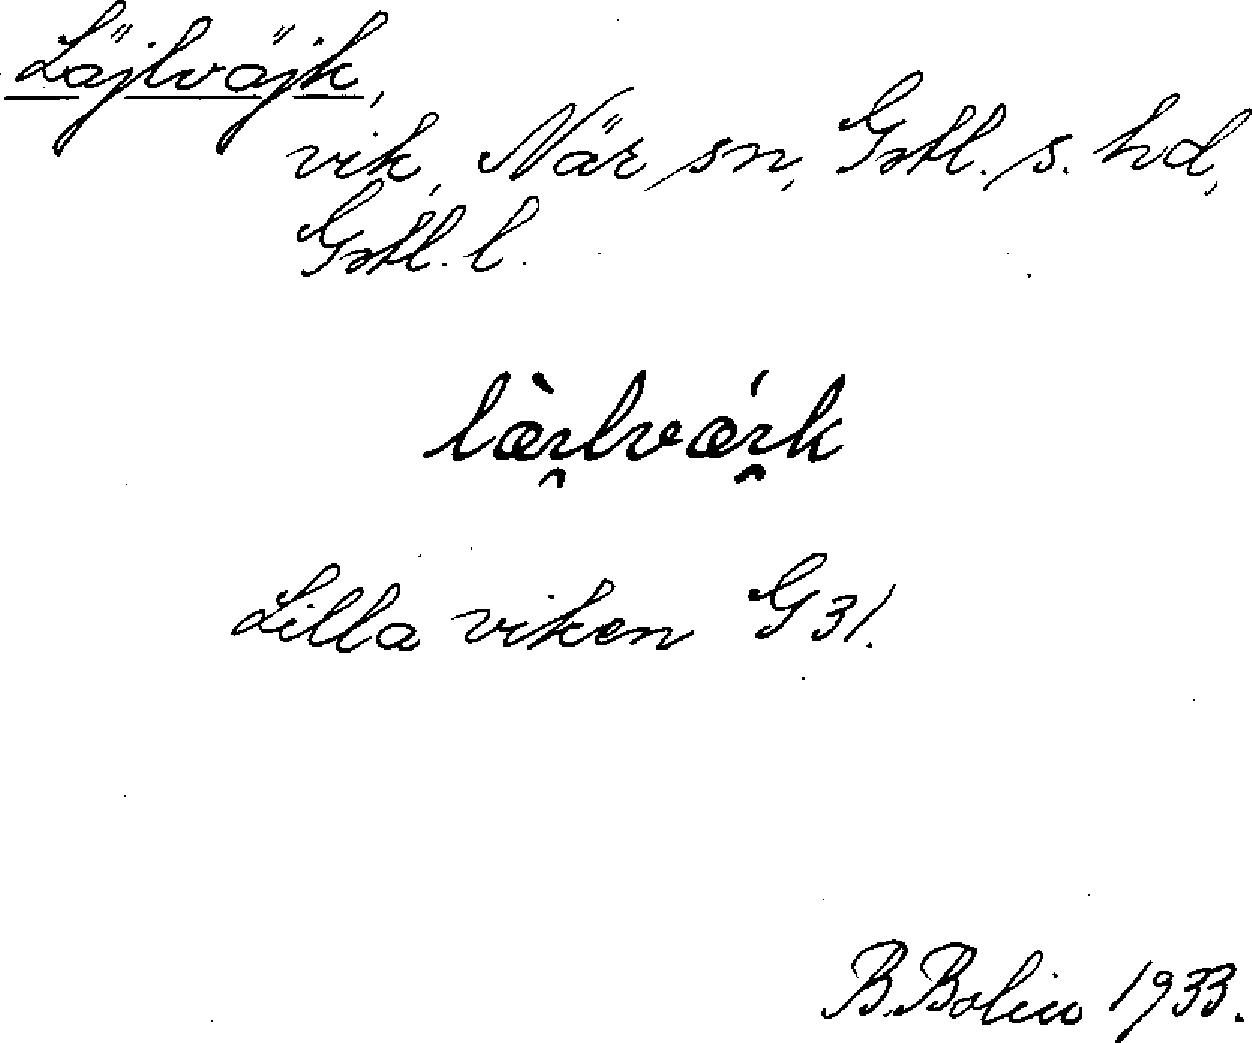 Läjlväjk,
vik, När sn, Gotl. s. hd,
Gotl. l.
Lilla viken G 31.
B. Bolin 1933.